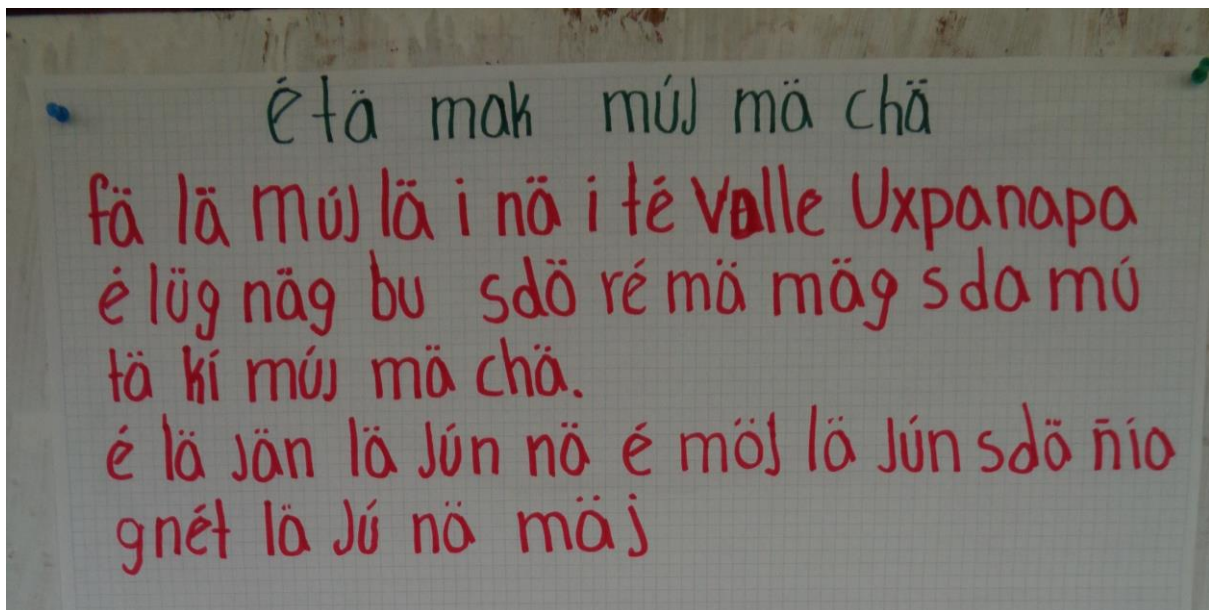 étä mak múj mä chä
fä lä múj lä i nä i té Valle Uxpanapa
é lüg näg bu sdö ré mä mäg sda mú
tä kí múj mä chä.
é lä jän lä jún nä é möj lä jún sdö ñía
gnét lä jú nä mäj